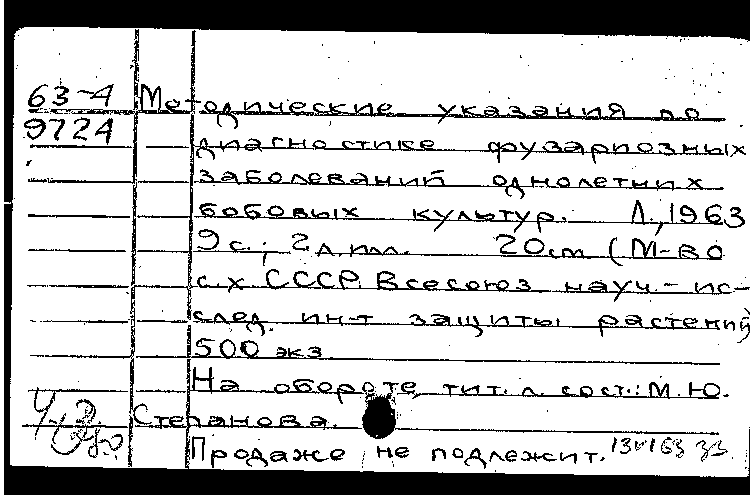 63-4 Методические указания по
9724 диагностике фузариозных
заболеваний однолетних
бобовых культур. Л., 1963
9 с.; 2 л. илл. 20 см (М-во
с.х СССР. Всесоюз науч.-ис-
след. ин-т защиты растений)
500 экз
На обороте тит. л. сост.: М.Ю.
Степанова.
Продаже не подлежит.